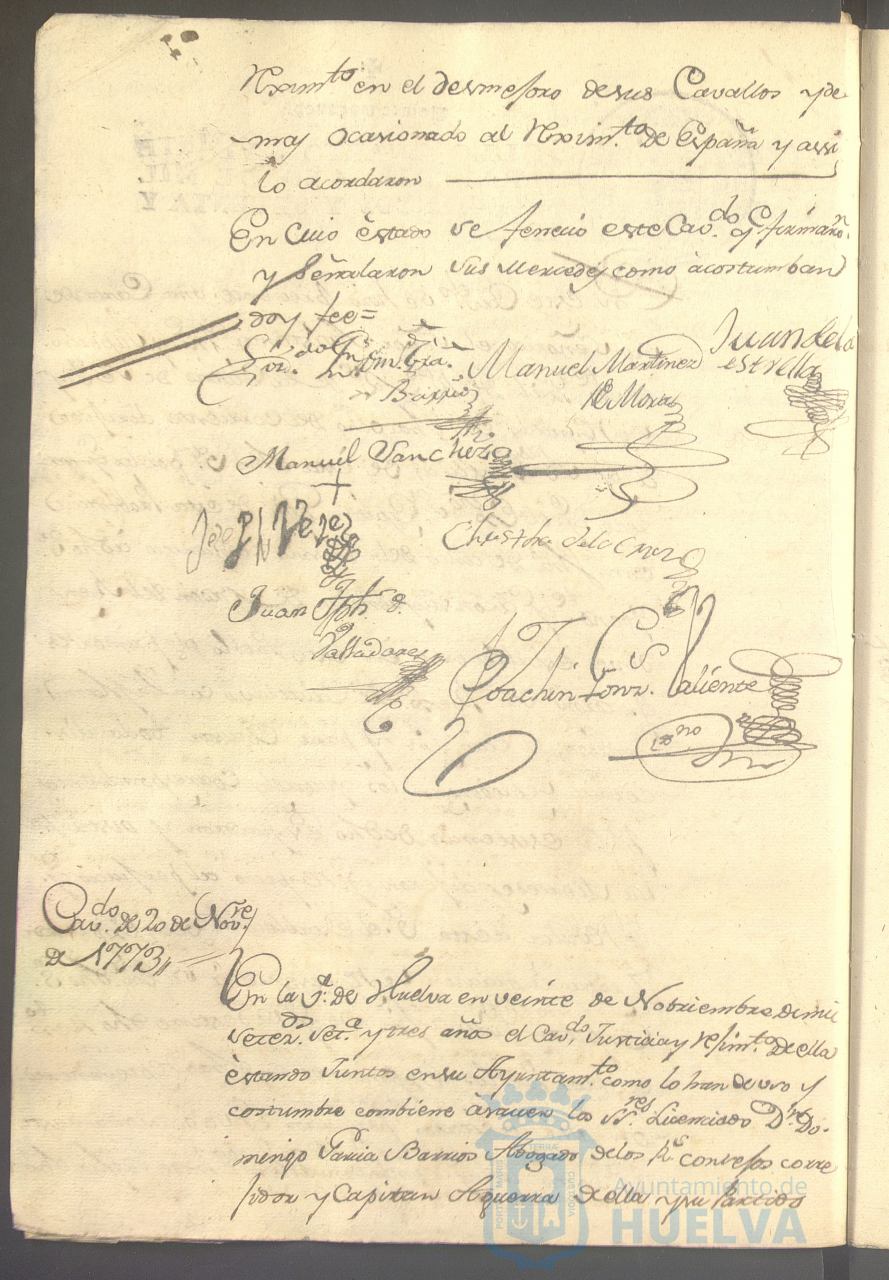 en el de sus Cavallos y de
mas ocasionado al de España y assi
lo acordaron
En cuio estado se fenecio este Cav.do q. firmaron
y señalaron sus mercedes como acostumban
doy fee=
Barrios
Manuel Martinez
de Mora
Juan de la
estrella
Manuel Sanchez
Perez
Christobal de la Cruz
Juan Jph. d.
Valladares
Joachin Fonz. Valiente
ss.no
Cav.do de 20 de Nov.re
de 1773,,
En la V.a de Huelva en veinte de Nobriembre de mil
setez.os set.a y tres años el Cav.do, Justicia y Rejim.to de ella
estando Juntos en su Ayuntam.to como lo han de uso y
costumbre combiene a saver los SS.res Licenciado D.n Do-
mingo Garcia Barrios Abogado de los R.s consejos corre
jidor y Capitan Aguerra de ella y su Partido
Ayuntamiento de
HUELVA